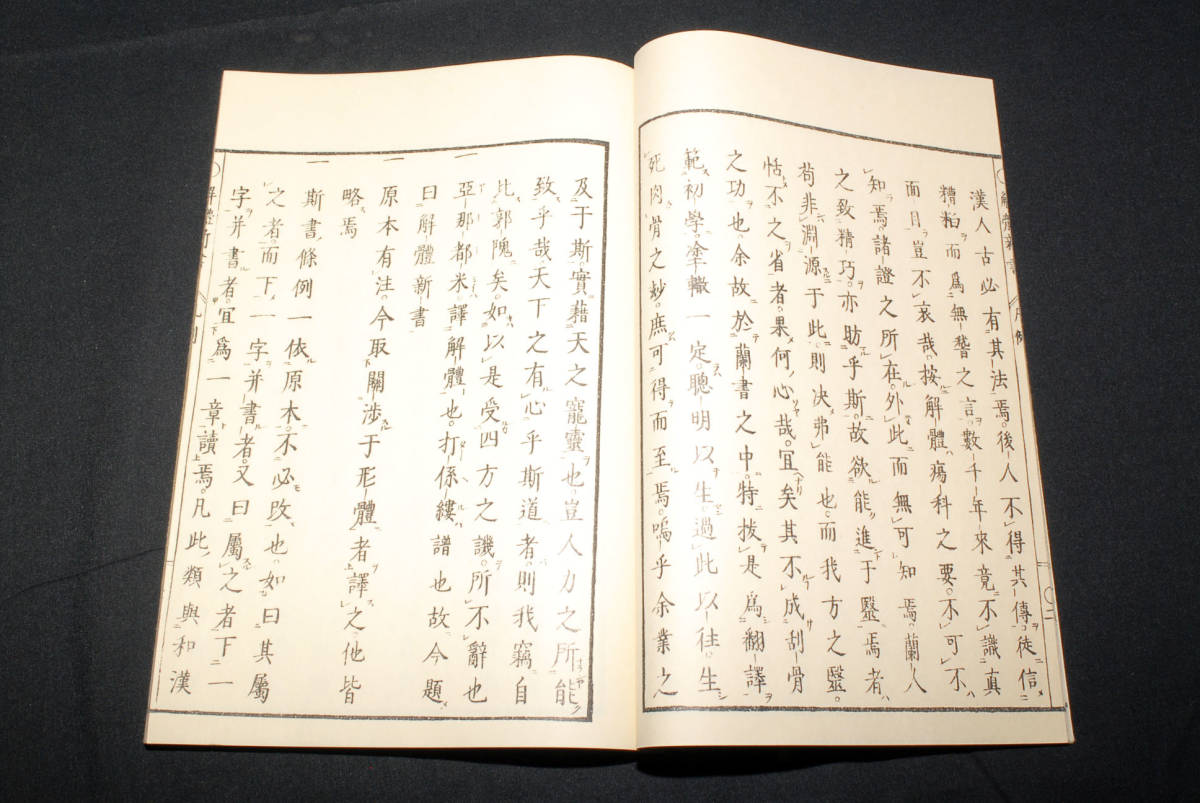 漢人古必有其法焉。後人不得其傳。徒信
糟粕而爲無瞽之言。數千年來竟不識真
面目。豈不哀哉。按解體瘍科之要。不可不
知焉。諸證之所在。外此而無可知焉。蘭人
之致精巧。亦昉乎斯。故欲能進于毉焉者。
苟非淵源于此。則决弗能也。而我方之毉。
恬不之省者。果何心哉。宜矣其不成刮骨
之功也。余故於蘭書之中。特拔是爲翻譯
範。初學塗轍一定。聰明以生。過此以往。生
死肉骨之妙。庶可得而至焉。嗚乎余業之
及于斯。實藉天之寵靈也。豈人力之所能
致乎哉。天下之有心乎斯道者。則我竊自
比郭隗矣。如以是受四方之譏。所不辭也
一亞那都米。譯解體也。打係縷譜也。故今題
曰解體新書
一原本有注。今取關渉于形體者譯之。他皆
略焉
一斯書條例一依原本。不必改也。如曰其屬
之者。而下一字并書者。又曰屬之者下一
字并書者。宜爲一章讀焉。凡此類與和漢